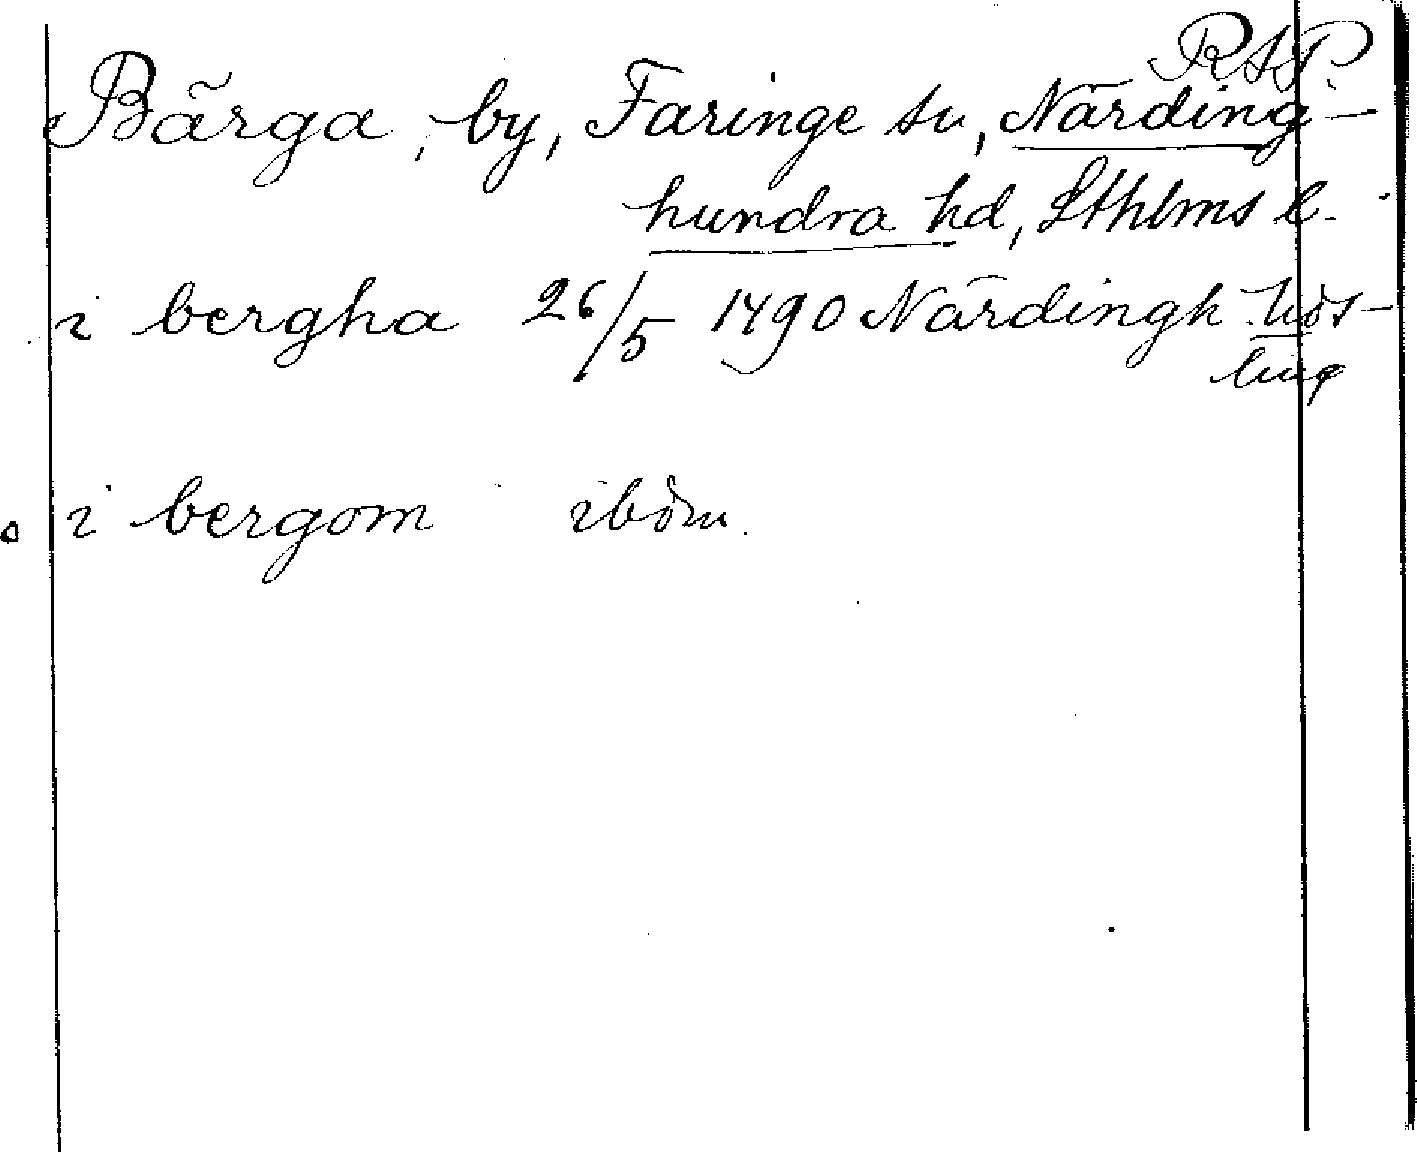 RAP.
Bärga, by, Faringe sn, Närding-
hundra hd, Sthlms l.
i bergha 26/5 1490 Närdingh
i bergom ibdm.